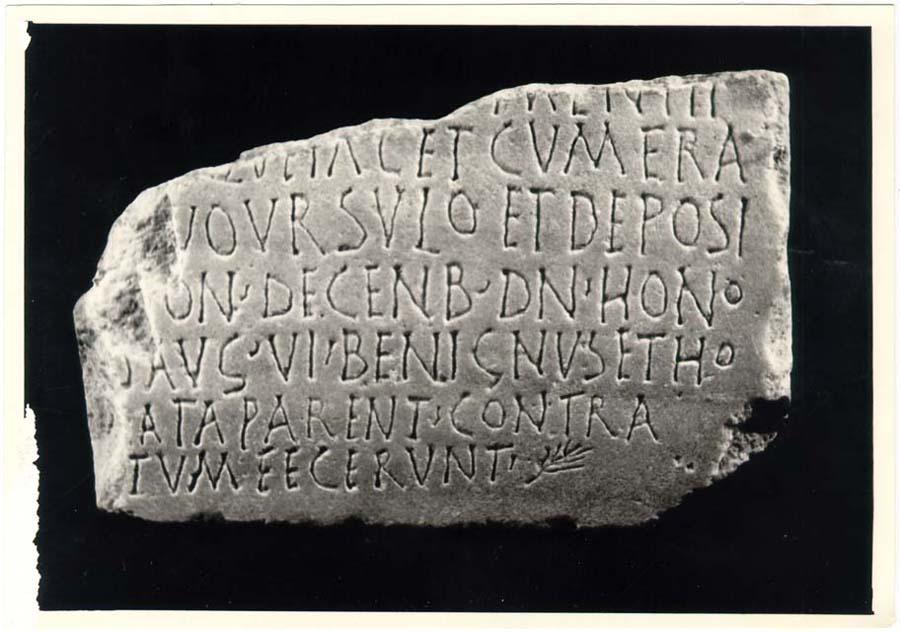 CET CUM ERA
UO URSULO ET DEPOSI
ON · DECENB · DN · HONO
AUG · VI · BENIGNUS ET HO
ATA PARENT · CONTRA
TUM FECERUNT ·